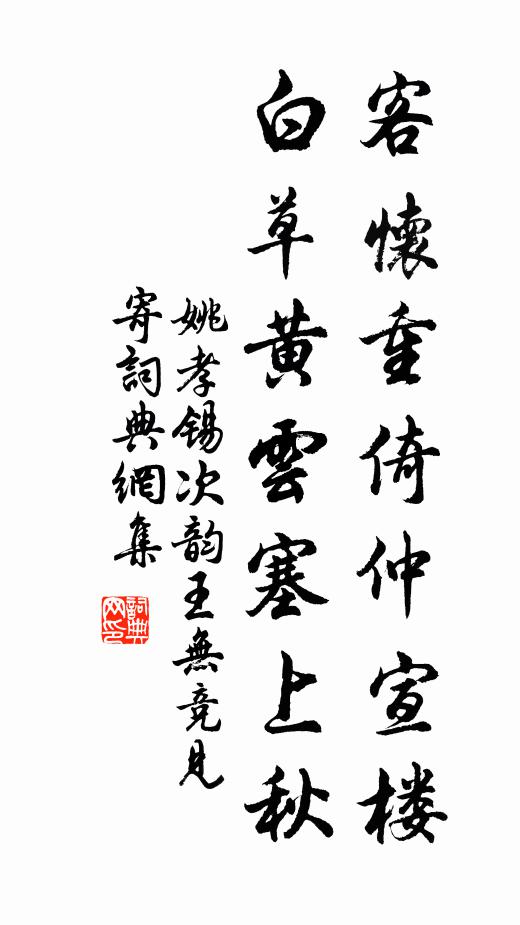 客懷重倚仲宣楼
白草黄雲塞上秋
姚孝锡次韵王無竞見
寄詞典網集
詞典网印